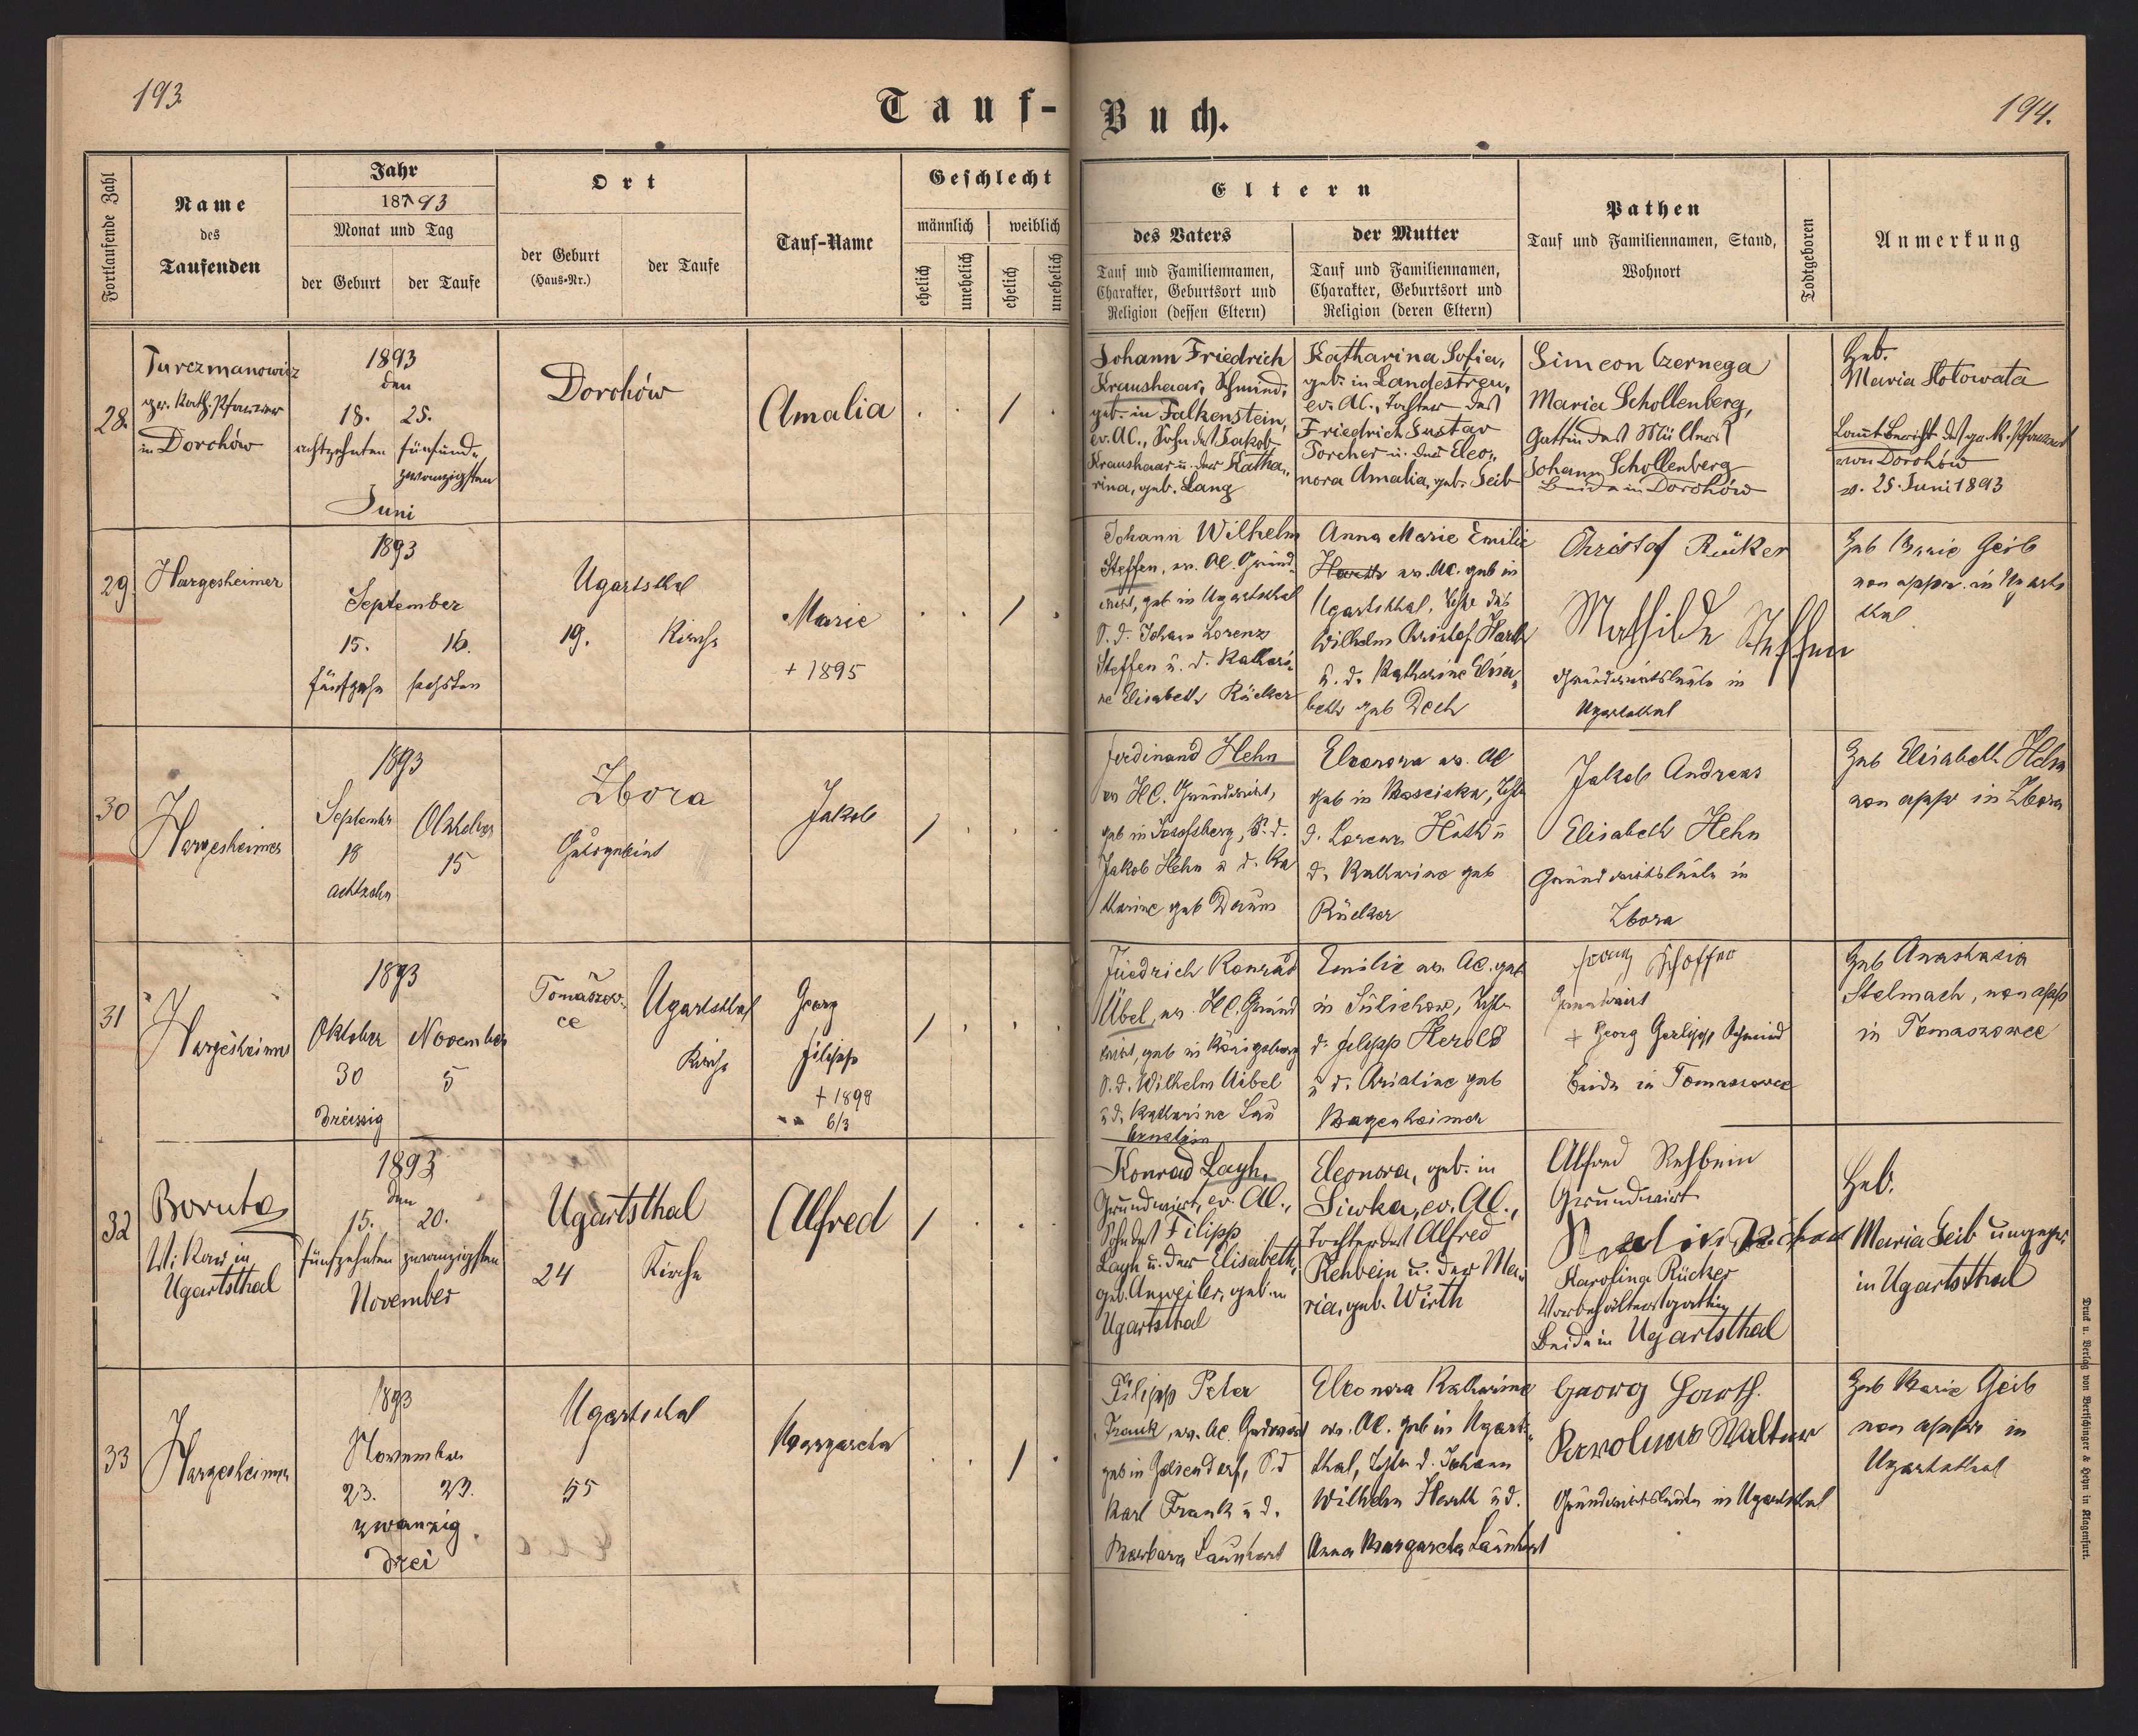 193
194.
Tauf-
Buch.
Fortlaufende Zahl
Name
des
Taufenden
Jahr
187 93
Monat und Tag
der Geburt
der Taufe
Ort
der Geburt
(Haus-Nr.)
der Taufe
Tauf-Name
Geschlecht
männlich
weiblich
ehelich
unehelich
ehelich
unehelich
Eltern
des Vaters
Tauf und Familiennamen,
Charakter, Geburtsort und
Religion (dessen Eltern)
der Mutter
Tauf und Familiennamen,
Charakter, Geburtsort und
Religion (deren Eltern)
Pathen
Tauf und Familiennamen, Stand,
Wohnort
Todtgeboren
Anmerkung
28.
Turczmanowicz
gr. Kath. Pfarrer
in Dorohów
1893
den
18. 25.
achtzehnten fünfund-
zwanzigsten
Juni
Dorohów
Amalia
Johann Friedrich
Kraushaar, Schmied,
geb. in Falkenstein,
ev. AC., Sohn des Jakob
Kraushaar u. der Katha-
rina, geb. Lang
Katharina Sofia,
geb. in Landestreu,
ev. AC., Tochter des
Friedrich Gustav
Torcher u. der Eleo-
nora Amalia, geb. Seib
Simeon Czernega
Maria Schollenberg,
Gattin des Müllers
Johann Schollenberg
Beide in Dorohów
Heb.
Maria Holowata
Laut Bericht des gr. K. Pfarrers
von Dorohów
v. 25. Juni 1893
29.
Hargesheimer
1893
September
15. 16.
fünfzehn sechsten
Ugartsthal
19. Kirche
Marie
+ 1895
Johann Wilhelm
Steffen, ev. AC. Grund-
wirt, geb in Ugartsthal
S. d. Johann Lorenz
Steffen u. d. Kathari-
ne Elisabeth Rücker
Anna Marie Emilie
Harth ev. AC. geb in
Ugartsthal, Tochter des
Wilhelm Christof Harth
u. d. Katharine Elisa-
beth geb Dech
Christof Rücker
Mathilde Steffen
Grundwirtsleute in
Ugartsthal
Heb Marie Geib
non appr. in Ugarts
thal
30
Hargesheimer
1893
September Oktober
18 15
achtzehn
Zbora
Jakob
Ferdinand Hehn
ev HC. Grundwirt,
geb in Josefsberg, S. d.
Jakob Hehn u d. Ka
tharine geb Daum
Eleonora ev. AC
geb in Mosciska, Tocht
d. Lorenz Huth u
d. Katharine geb
Rücker
Jakob Andreas
Elisabeth Hehn
Grundwirtsleute in
Zbora
Heb Elisabeth Hehn
non appr in Zbora
31
Hargesheimer
1893
Oktober November
30 5
dreissig
Tomaszow-
ce
Ugartsthal
Kirche
Georg
Filipp
+ 1898
6/3
Friedrich Konrad
Übel, ev. HC. Grund
wirt, geb in Königsberg
S. d. Wilhelm Uibel
u d. Katharine Lau
Emilie ev. AC. geb
in Sulichow, Tocht
d. Filipp Herold
u d. Christine geb
Bagenheimer
Grundwirt
+ Georg Schmied
beide in Tomaszowce
Heb Anastasia
Stelmach, non app
in Tomaszowce
32
Boruta
Vikar in
Ugartsthal
1893
den
15. 20.
fünfzehnten zwanzigsten
November
Ugartsthal
24 Kirche
Alfred
Konrad Layh,
Grundwirt, ev. AC.,
Sohn des Filipp
Layh u. der Elisabeth,
geb. Anweiler, geb. in
Ugartsthal
Eleonora, geb. in
Siwka, ev. AC.,
Tochter des Alfred
Rehbein u. der Ma-
ria, geb. Wirth
Alfred Rehbein
Grundwirt
Karolina Rücker
Vorbehaltersgattin
Beide in Ugartsthal
Heb.
Maria Geib ungepr.
in Ugartsthal
33
Hargesheimer
1893
November
23. 23.
zwanzig
drei
Ugartsthal
55
Margareta
Filipp Peter
Frank, ev. AC. Grundwirt
geb in Gelsendorf, S. d
Karl Frank u d.
Barbara Launhart
Eleonora Katharine
ev. AC. geb in Ugarts-
thal, Tocht d. Johann
Wilhelm Harth u d.
Anna Margareta Launhart
Georg Harth.
Karoline Walter
Grundwirtsleute in Ugartsthal
Heb Marie Geib
non appr in
Ugartsthal
Druck u. Verlag von Bertschinger & Heyn in Klagenfurt.